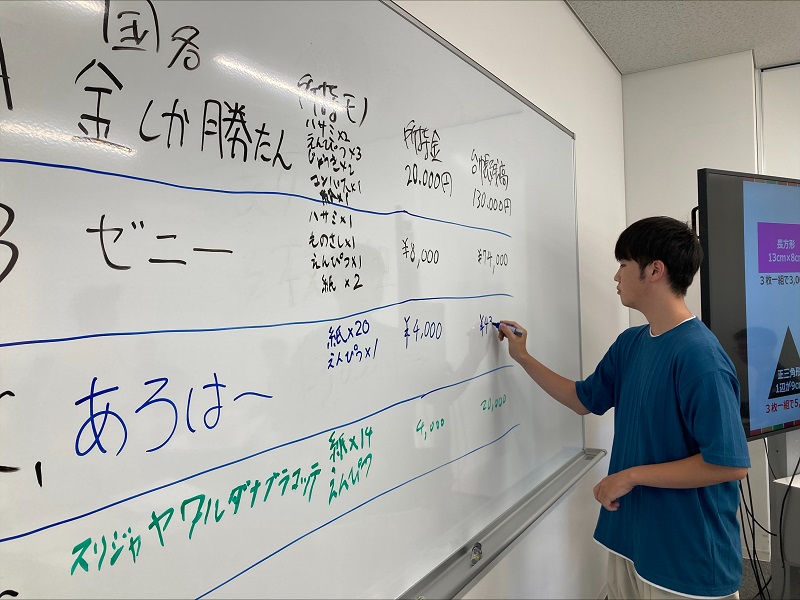 国名
金しか勝たん
(所持モノ)
ハサミ×2
えんぴつ×3
じょうぎ×2
コンパス×1
紙×1
所持金
20.000円
合計残高
130.000円
ゼニー
ハサミ×1
ものさし×1
えんぴつ×1
紙 ×2
¥8,000
¥74,000
あろは〜
紙×20
えんぴつ×1
¥4,000
¥43
スリジャヤワルダナプラコッテ
紙×14
えんぴつ
4,000
20,000
長方形
13cm×8c
3枚一組で3,0
正三角形
1辺が9c
3枚一組で5,